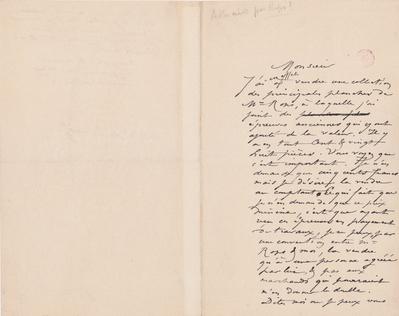 Monsieur
J'ai à vendre une collection
des principales planches de
Mr Rops, à laquelle j'ai
joint des
épreuves anciennes qui ajoutent
de la valeur. Il y
a en tout Cent & vingt
huit pièces. Vous voyez que
c'est important. Je n'en
demande que cinq cents francs
mais je désire la vendre
au comptant. Ce qui fait que
je n'en demande que ce prix
minime, c'est que ayant
reçu ces épreuves en payement
de travaux, je ne peux par
une convention entre Mr
Rops & moi, la vendre
qu'à une personne agréée
par lui, & pas aux
marchands qui pourraient
m'en donner le double.
Dites moi où je peux vous